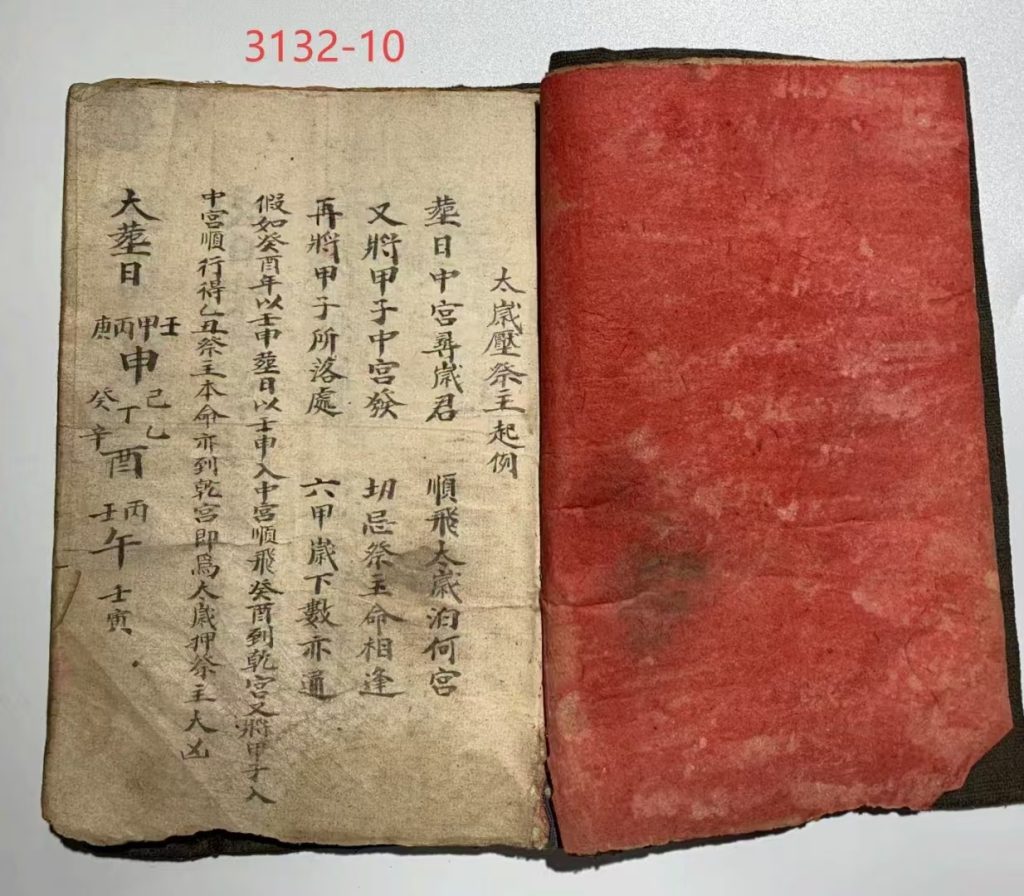 3132-10
太歲壓祭主起例
塟日中宮尋歲君 順飛太歲泊何宮
又將甲子中宮發 切忌祭主命相逢
再將甲子所落處 六甲歲下數亦通
假如癸酉年以壬申塟日以壬申入中宮順飛癸酉到乾宮又將甲子入
中宮順行得乙丑祭主本命亦到乾宮即爲太歲押祭主大凶
大塟日
庚丙甲壬
申
癸丁己
辛乙
酉
壬丙
午
壬寅